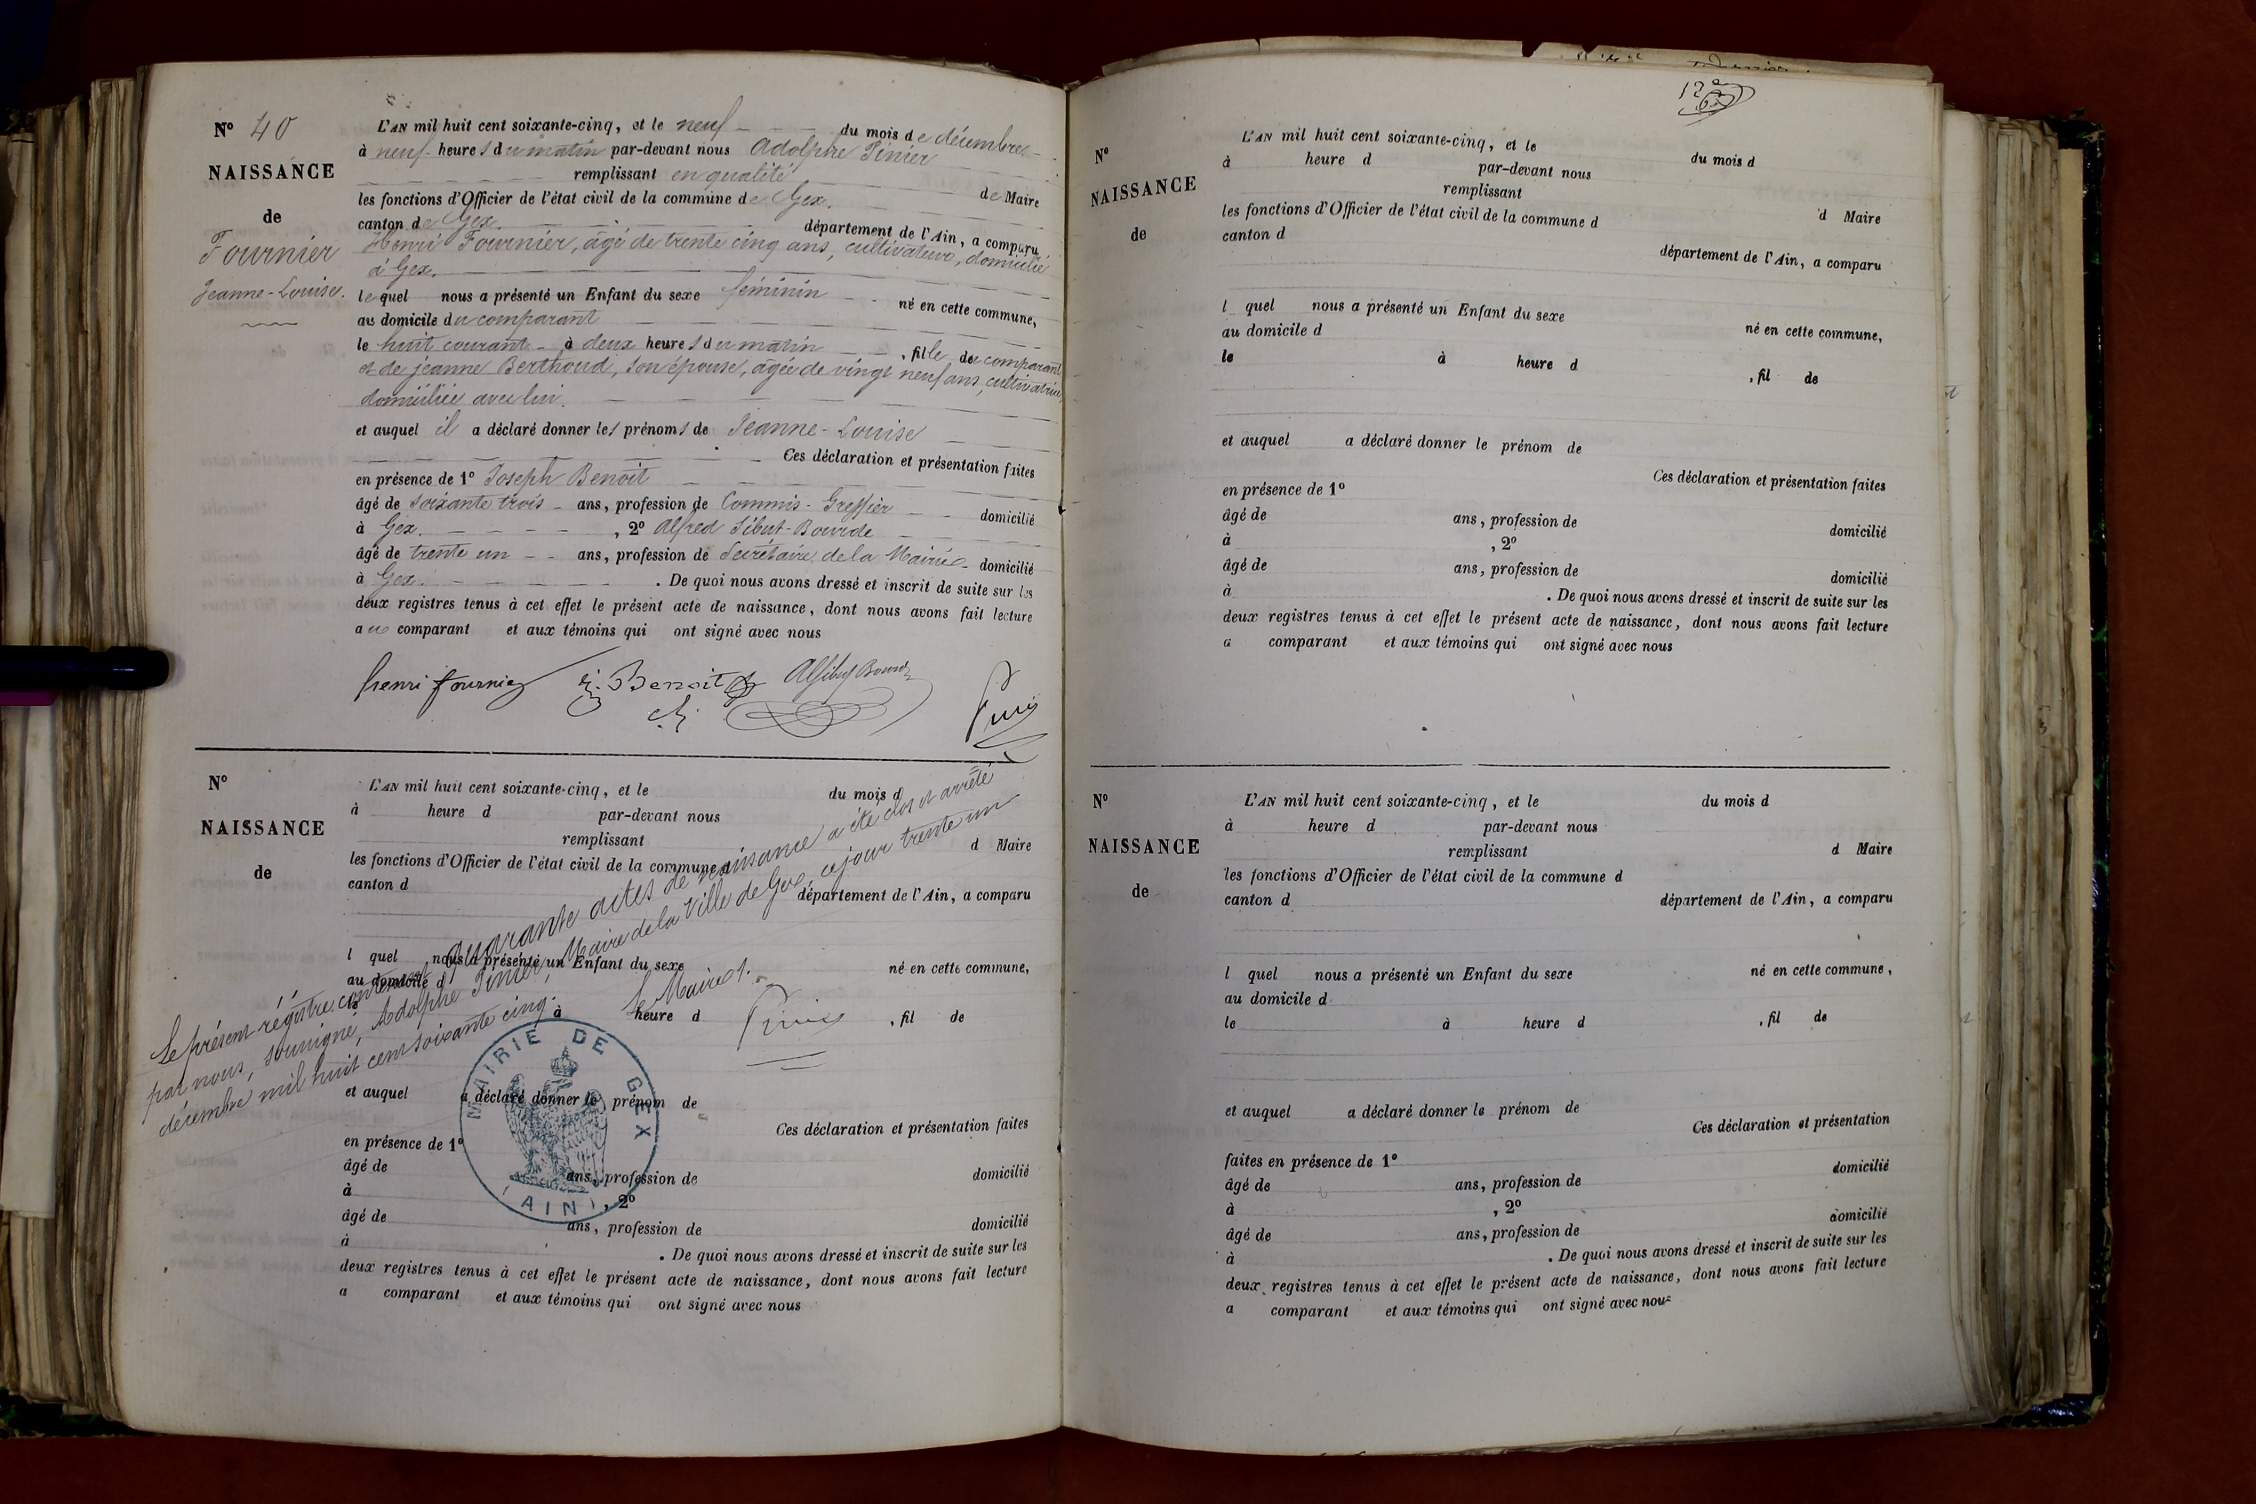 N° 40
NAISSANCE
de
Fournier
Jeanne-Louise.
L'AN mil huit cent soixante-cinq, et le neuf du mois de décembre
à neuf heures du matin par-devant nous Adolphe Pinier
remplissant en qualité de Maire
les fonctions d'Officier de l'état civil de la commune de Gex.
canton de Gex. département de l'Ain, a comparu
Henri Fournier, âgé de trente cinq ans, cultivateur, domicilié
à Gex.
lequel nous a présenté un Enfant du sexe féminin né en cette commune,
au domicile du comparant
le huit courant à deux heures du matin , fille du comparant
et de jeanne Berthoud, son épouse, âgée de vingt neuf ans, cultivatrice,
domiciliée avec lui.
et auquel il a déclaré donner les prénoms de Jeanne-Louise
Ces déclaration et présentation faites
en présence de 1° Joseph Benoit
âgé de soixante trois ans, profession de Commis-Greffier domicilié
à Gex. , 2° Alfred Sibut-Bourde
âgé de trente un ans, profession de Secrétaire de la Mairie domicilié
à Gex. . De quoi nous avons dressé et inscrit de suite sur les
deux registres tenus à cet effet le présent acte de naissance, dont nous avons fait lecture
au comparant et aux témoins qui ont signé avec nous
henri fournier J. Benoit A Sibut Bourde Pinier
N°
NAISSANCE
de
L'AN mil huit cent soixante-cinq, et le du mois d
à heure d par-devant nous
remplissant d Maire
les fonctions d'Officier de l'état civil de la commune d
canton d département de l'Ain, a comparu
l quel nous a présenté un Enfant du sexe né en cette commune,
au domicile d
le à heure d , fil de
et auquel a déclaré donner le prénom de
Ces déclaration et présentation faites
en présence de 1°
âgé de ans, profession de domicilié
à , 2°
âgé de ans, profession de domicilié
à . De quoi nous avons dressé et inscrit de suite sur les
deux registres tenus à cet effet le présent acte de naissance, dont nous avons fait lecture
a comparant et aux témoins qui ont signé avec nous
Le présent régistre contenant quarante actes de naissance a été clos et arrêté
par nous, soussigné, Adolphe Pinier, Maire de la Ville de Gex, ce jour trente un
décembre mil huit cent soixante cinq.
Le Maire
Pinier
MAIRIE DE GEX
(AIN)
N°
NAISSANCE
de
L'AN mil huit cent soixante-cinq, et le du mois d
à heure d par-devant nous
remplissant d Maire
les fonctions d'Officier de l'état civil de la commune d
canton d département de l'Ain, a comparu
l quel nous a présenté un Enfant du sexe né en cette commune,
au domicile d
le à heure d , fil de
et auquel a déclaré donner le prénom de
Ces déclaration et présentation faites
en présence de 1°
âgé de ans, profession de domicilié
à , 2°
âgé de ans, profession de domicilié
à . De quoi nous avons dressé et inscrit de suite sur les
deux registres tenus à cet effet le présent acte de naissance, dont nous avons fait lecture
a comparant et aux témoins qui ont signé avec nous
N°
NAISSANCE
de
L'AN mil huit cent soixante-cinq, et le du mois d
à heure d par-devant nous
remplissant d Maire
les fonctions d'Officier de l'état civil de la commune d
canton d département de l'Ain, a comparu
l quel nous a présenté un Enfant du sexe né en cette commune,
au domicile d
le à heure d , fil de
et auquel a déclaré donner le prénom de
Ces déclaration et présentation
faites en présence de 1°
âgé de ans, profession de domicilié
à , 2°
âgé de ans, profession de domicilié
à . De quoi nous avons dressé et inscrit de suite sur les
deux registres tenus à cet effet le présent acte de naissance, dont nous avons fait lecture
a comparant et aux témoins qui ont signé avec nous